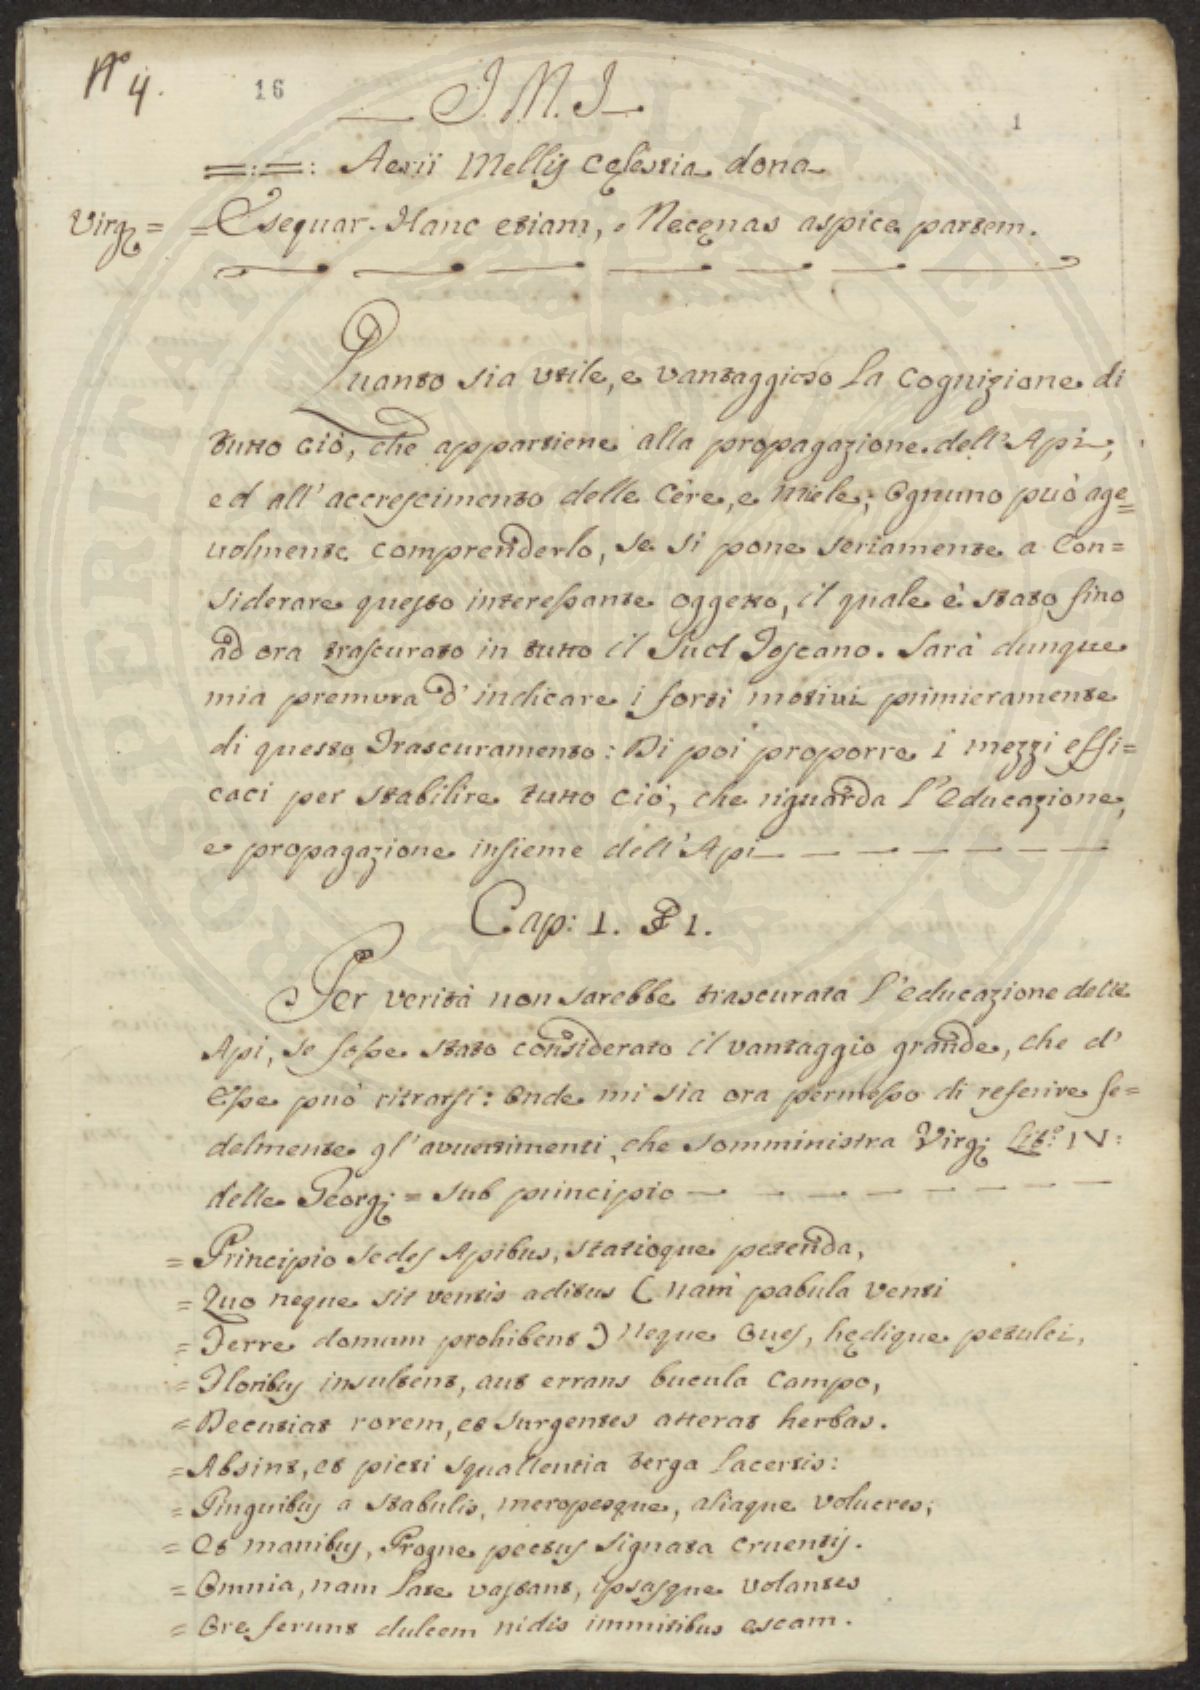 N.º 4.
16
J. M. J.
1
=:=: Aerii Mellis cęlestia dona
Virg: = = Exequar. Hanc etiam, Mecęnas aspice partem.
Quanto sia utile, e vantaggioso la Cognizione di
tutto ciò, che appartiene alla propagazione dell'Api,
ed all'accrescimento delle Cère, e Miele; Ognuno può age=
uolmente comprenderlo, se si pone seriamente a Con=
siderare questo interessante oggetto, il quale è stato fino
ad ora trascurato in tutto il Suol Toscano. Sarà dunque
mia premura d'indicare i forti motivi primieramente
di questo Trascuramento: Di poi proporre i mezzi effi=
caci per stabilire tutto ciò, che riguarda l'educazione,
e propagazione insieme dell'Api
Cap: 1. § 1.
Per verità non sarebbe trascurata l'educazione delle
Api, se fosse stato considerato il vantaggio grande, che d'
Esse può ritrarsi: Onde mi sia ora permesso di referire fe=
delmente gl'avvertimenti, che somministra Virg: Lib.º IV:
delle Georg: = sub principio
= Principio sedes Apibus, statioque petenda,
= Quo neque sit ventis aditus (nam pabula venti
= Ferre domum prohibent) Neque Oues, hędique petulci,
= Floribus insultent, aut errans bucula Campo,
= Decutiat rorem, et surgentes atterat herbas.
= Absint, et picti squallentia terga lacertis:
= Pinguibus a stabulis, meropesque, aliaque volucres;
= Et manibus, Progne pectus signata cruentis.
= Omnia, nam late vastant, ipsasque volantes
= Ore ferunt dulcem nidis immitibus escam.